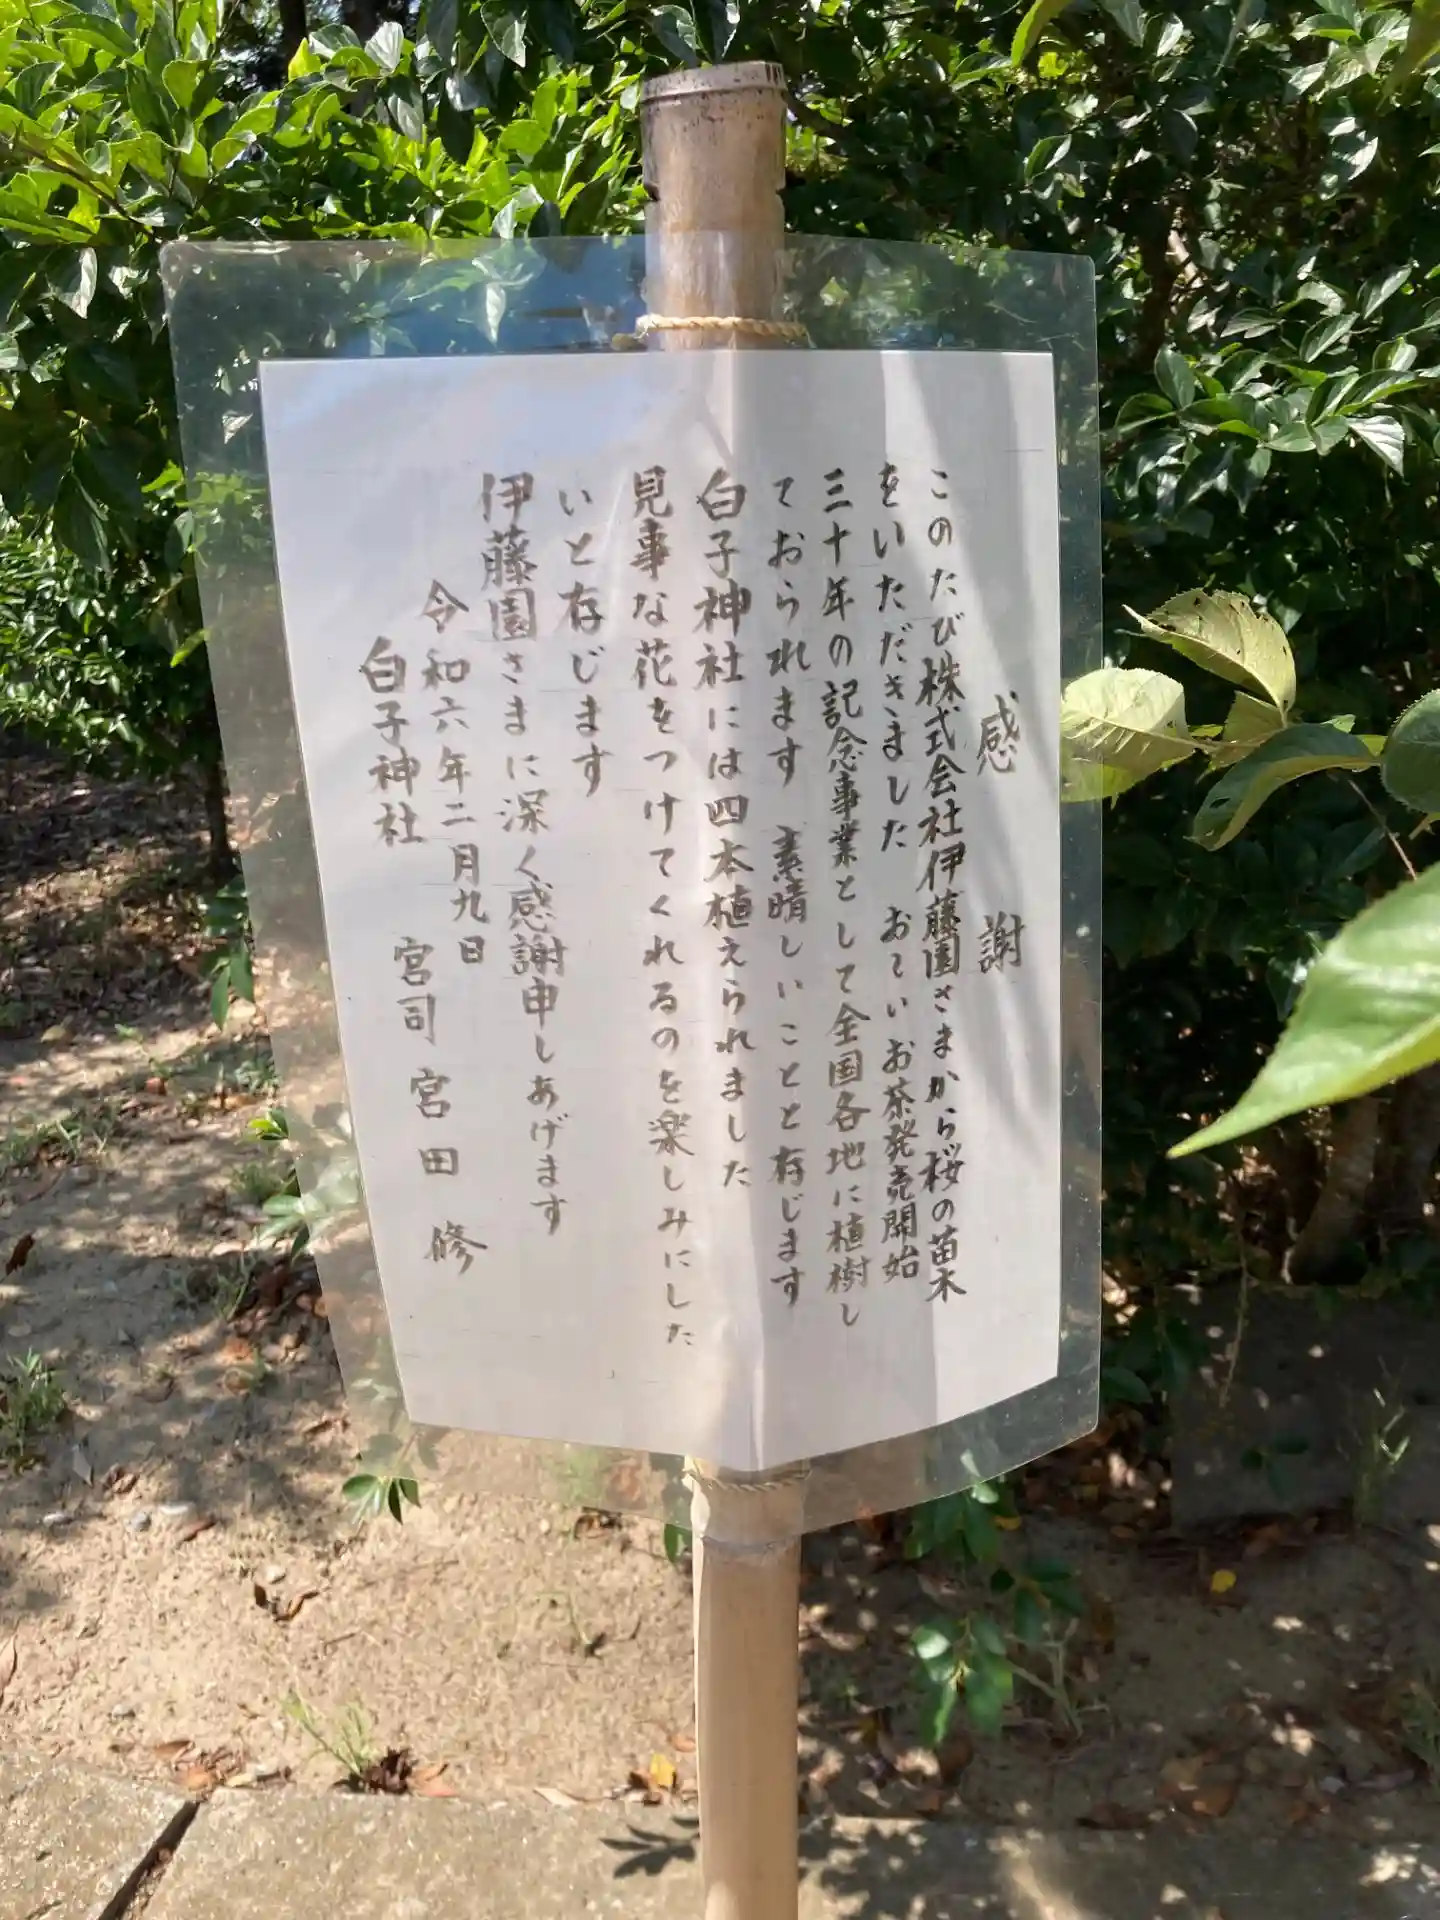 感謝
このたび株式会社伊藤園さまから桜の苗木
をいただきました おーいお茶発売開始
三十年の記念事業として全国各地に植樹し
ておられます 素晴しいことと存じます
白子神社には四本植えられました
見事な花をつけてくれるのを楽しみにした
いと存じます
伊藤園さまに深く感謝申しあげます
令和六年二月九日
白子神社 宮司 宮田 修